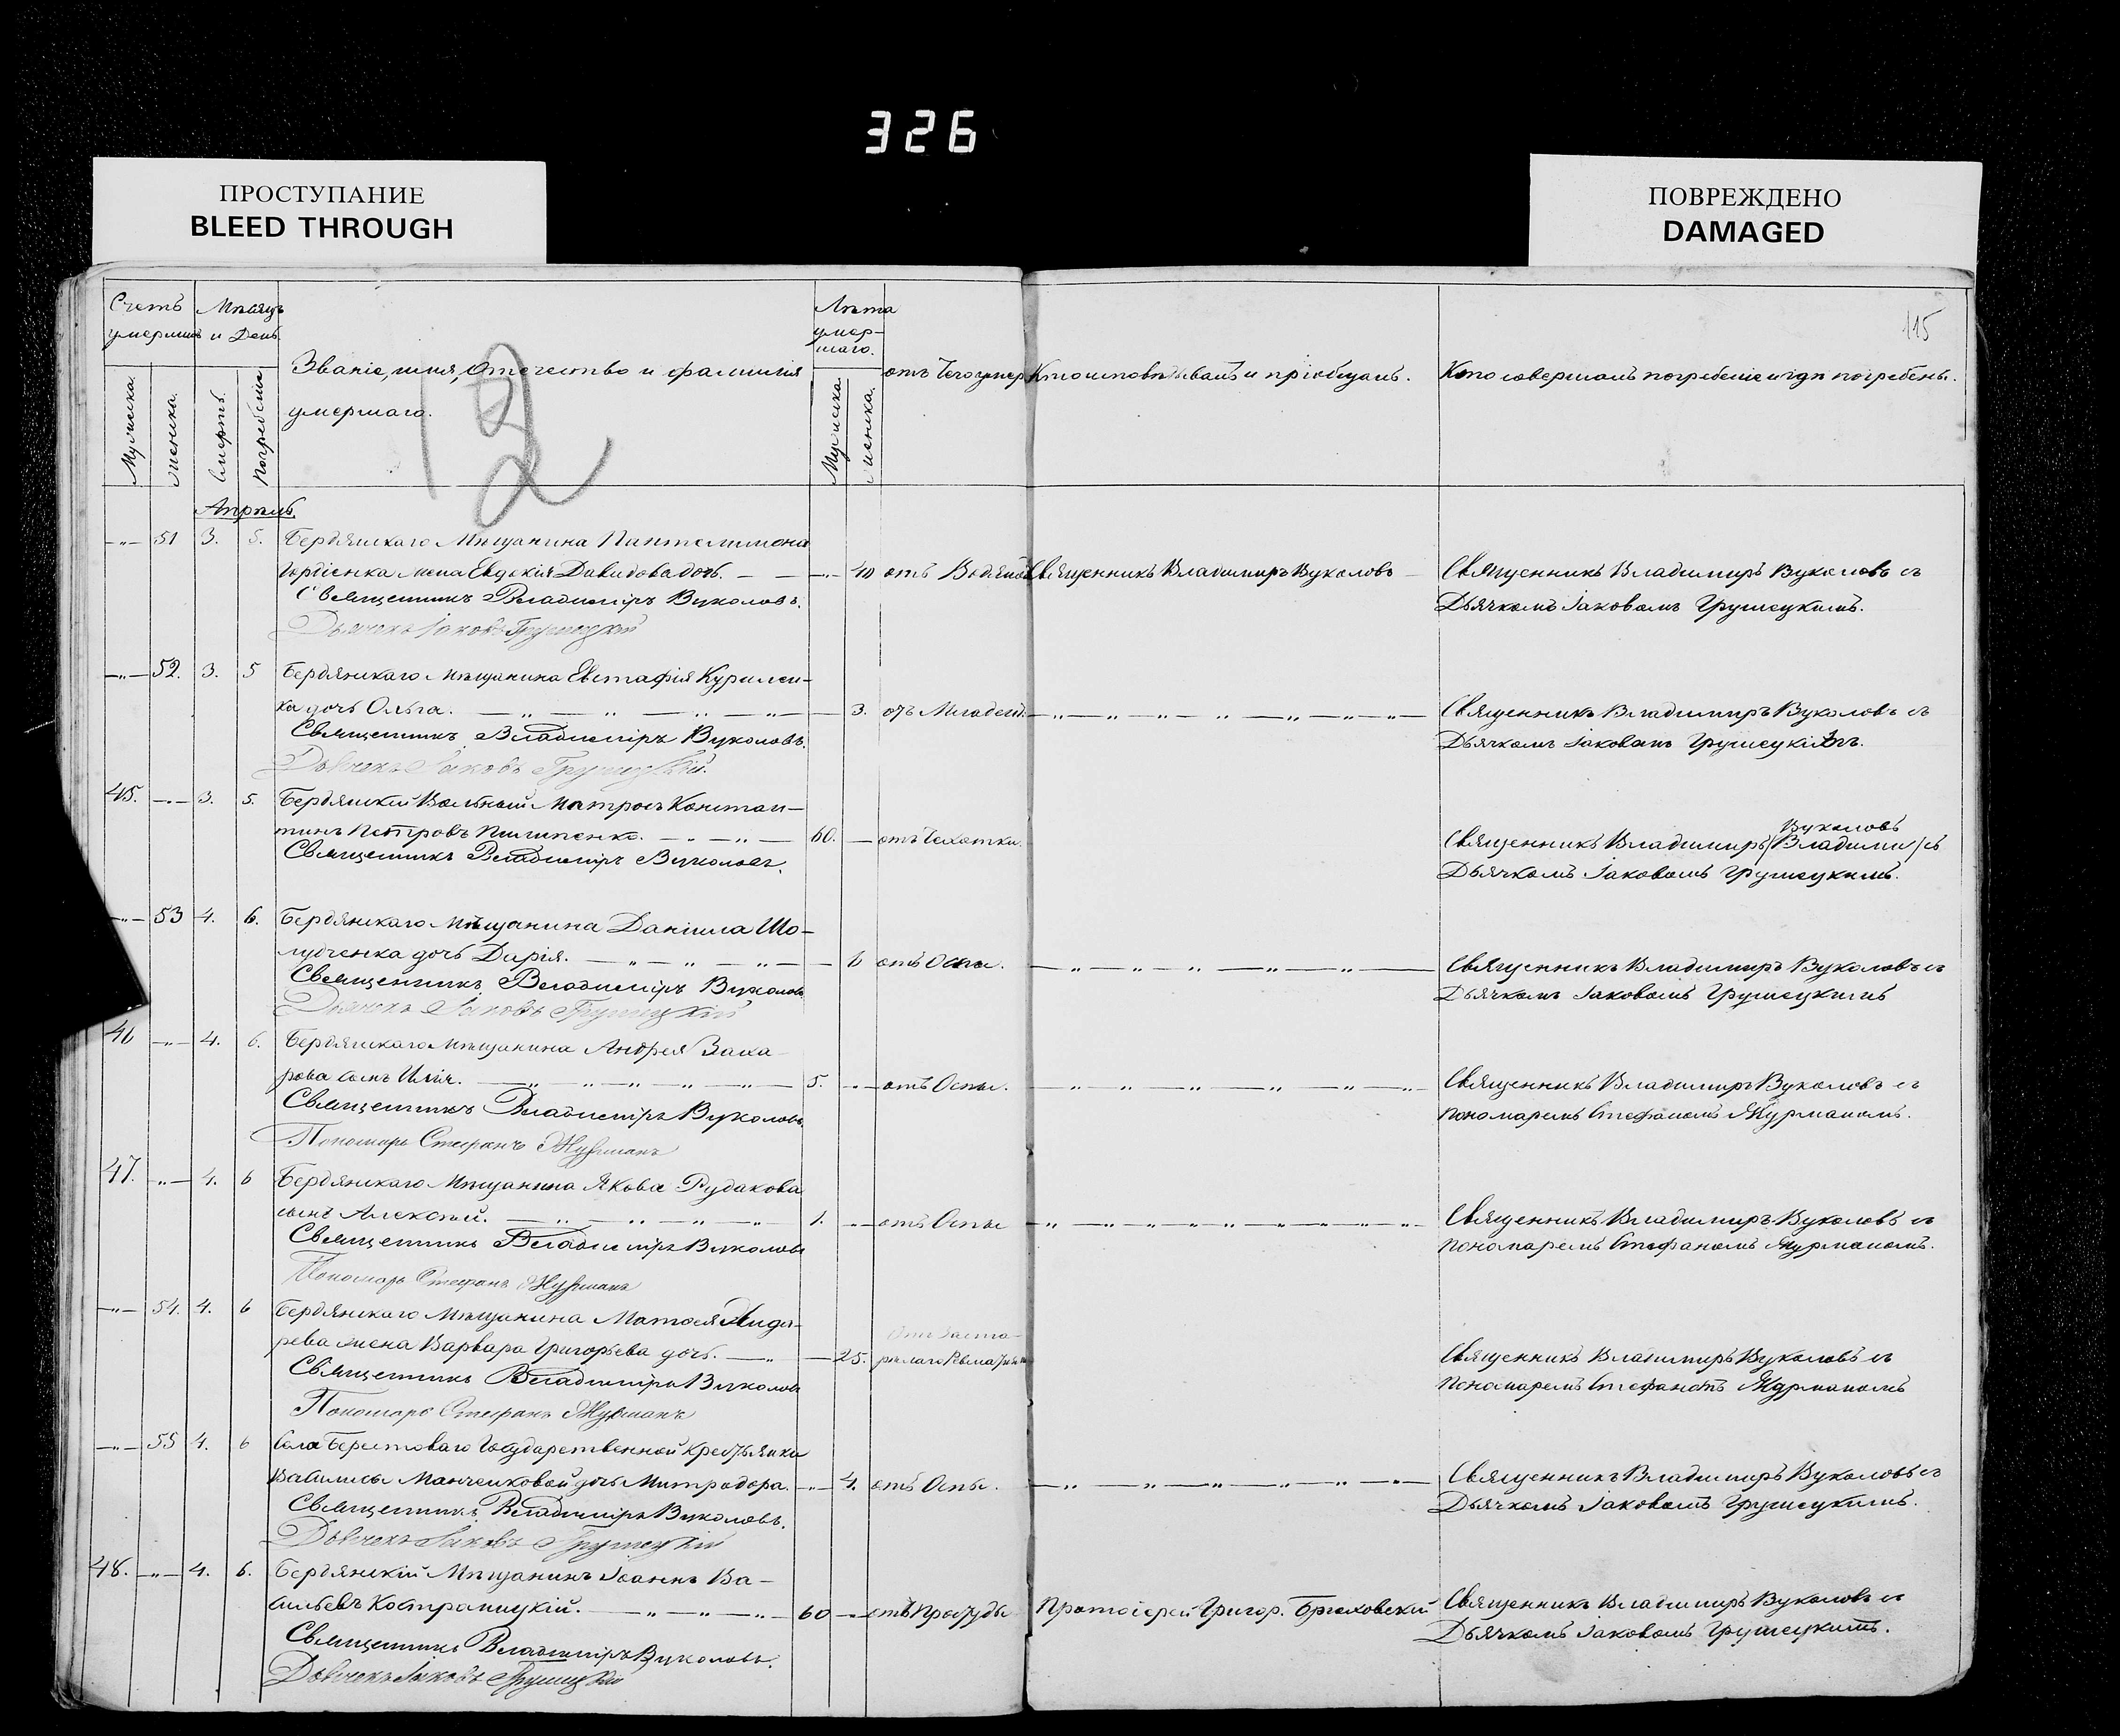 326
ПРОСТУПАНИЕ
BLEED THROUGH
ПОВРЕЖДЕНО
DAMAGED
115
Счетъ умершихъ
Мужеска.
Женска.
Мѣсяцъ и День.
Смерть.
Погребенія
Званіе, имя, отечество и фамилія
умершаго.
Лѣта умер-
шаго.
Мужеска.
Женска.
отъ чего умеръ
Кто исповѣдывалъ и пріобщалъ.
Кто совершалъ погребеніе и гдѣ погребены.
12
Апрѣль
-"- 51 3. 5. Бердянскаго Мѣщанина Пантелимона
Гордіенка жена Евдокія Давидова дочь. — -"- 40 отъ Водяной Священникъ Владимиръ Вуколовъ — Священникъ Владимиръ Вуколовъ съ
Священникъ Владимиръ Вуколовъ. Дьячкомъ Іаковомъ Грушецкимъ.
Дьячекъ Іаковъ Грушецкій
-"- 52. 3. 5 Бердянскаго Мѣщанина Евстафія Курилен-
ка дочь Ольга. — " — " — 3. отъ Младенч. — " — " — Священникъ Владимиръ Вуколовъ съ
Священникъ Владимиръ Вуколовъ. Дьячкомъ Іаковомъ Грушецкимъ.
Дьячекъ Іаковъ Грушецкій.
45. -"- 3. 5. Бердянскій Вольный Матросъ Констан-
тинъ Петровъ Пилипенко. — " — 60. — отъ Чахотки. Священникъ Владимиръ (Владими) Вуколовъ съ
Священникъ Владимиръ Вуколовъ. Дьячкомъ Іаковомъ Грушецкимъ.
-"- 53 4. 6. Бердянскаго Мѣщанина Даніила Шо-
лудченка дочь Дарія. — " — " — 6 отъ Оспы. — " — " — Священникъ Владимиръ Вуколовъ съ
Священникъ Владимиръ Вуколовъ Дьячкомъ Іаковомъ Грушецкимъ
Дьячекъ Іаковъ Грушецкій
46 -"- 4. 6. Бердянскаго Мѣщанина Андрея Заха-
рова сынъ Илія. — " — " — 5. -"- отъ Оспы. — " — " — Священникъ Владимиръ Вуколовъ съ
Священникъ Владимиръ Вуколовъ. пономаремъ Стефаномъ Журманомъ.
Пономарь Стефанъ Журманъ
47. -"- 4. 6 Бердянскаго Мѣщанина Якова Рудакова
сынъ Алексѣй. — " — " — 1. -"- отъ Оспы — " — " — Священникъ Владимиръ Вуколовъ съ
Священникъ Владимиръ Вуколовъ пономаремъ Стефаномъ Журманомъ.
Пономарь Стефанъ Журманъ
-"- 54. 4. 6 Бердянскаго Мѣщанина
рева жена Варвара Григорьева дочь. — " — 25. отъ заста-
рѣлаго Ревматизма Священникъ Владимиръ Вуколовъ съ
Священникъ Владимиръ Вуколовъ пономаремъ Стефаномъ Журманомъ
Пономарь Стефанъ Журманъ
-"- 55 4. 6 Села Берестоваго Государственной крестьянки
Василисы Манченковой дочь Митродора. -"- 4. отъ Оспы. — " — " — Священникъ Владимиръ Вуколовъ съ
Священникъ Владимиръ Вуколовъ. Дьячкомъ Іаковомъ Грушецкимъ.
Дьячекъ Іаковъ Грушецкій
48. -"- 4. 6. Бердянскій Мѣщанинъ Іоаннъ Ва-
сильевъ Костраницкій. — " — " — 60 -"- отъ Простуды Протоіерей Григор. Священникъ Владимиръ Вуколовъ съ
Священникъ Владимиръ Вуколовъ. Дьячкомъ Іаковомъ Грушецкимъ.
Дьячекъ Іаковъ Грушецкій